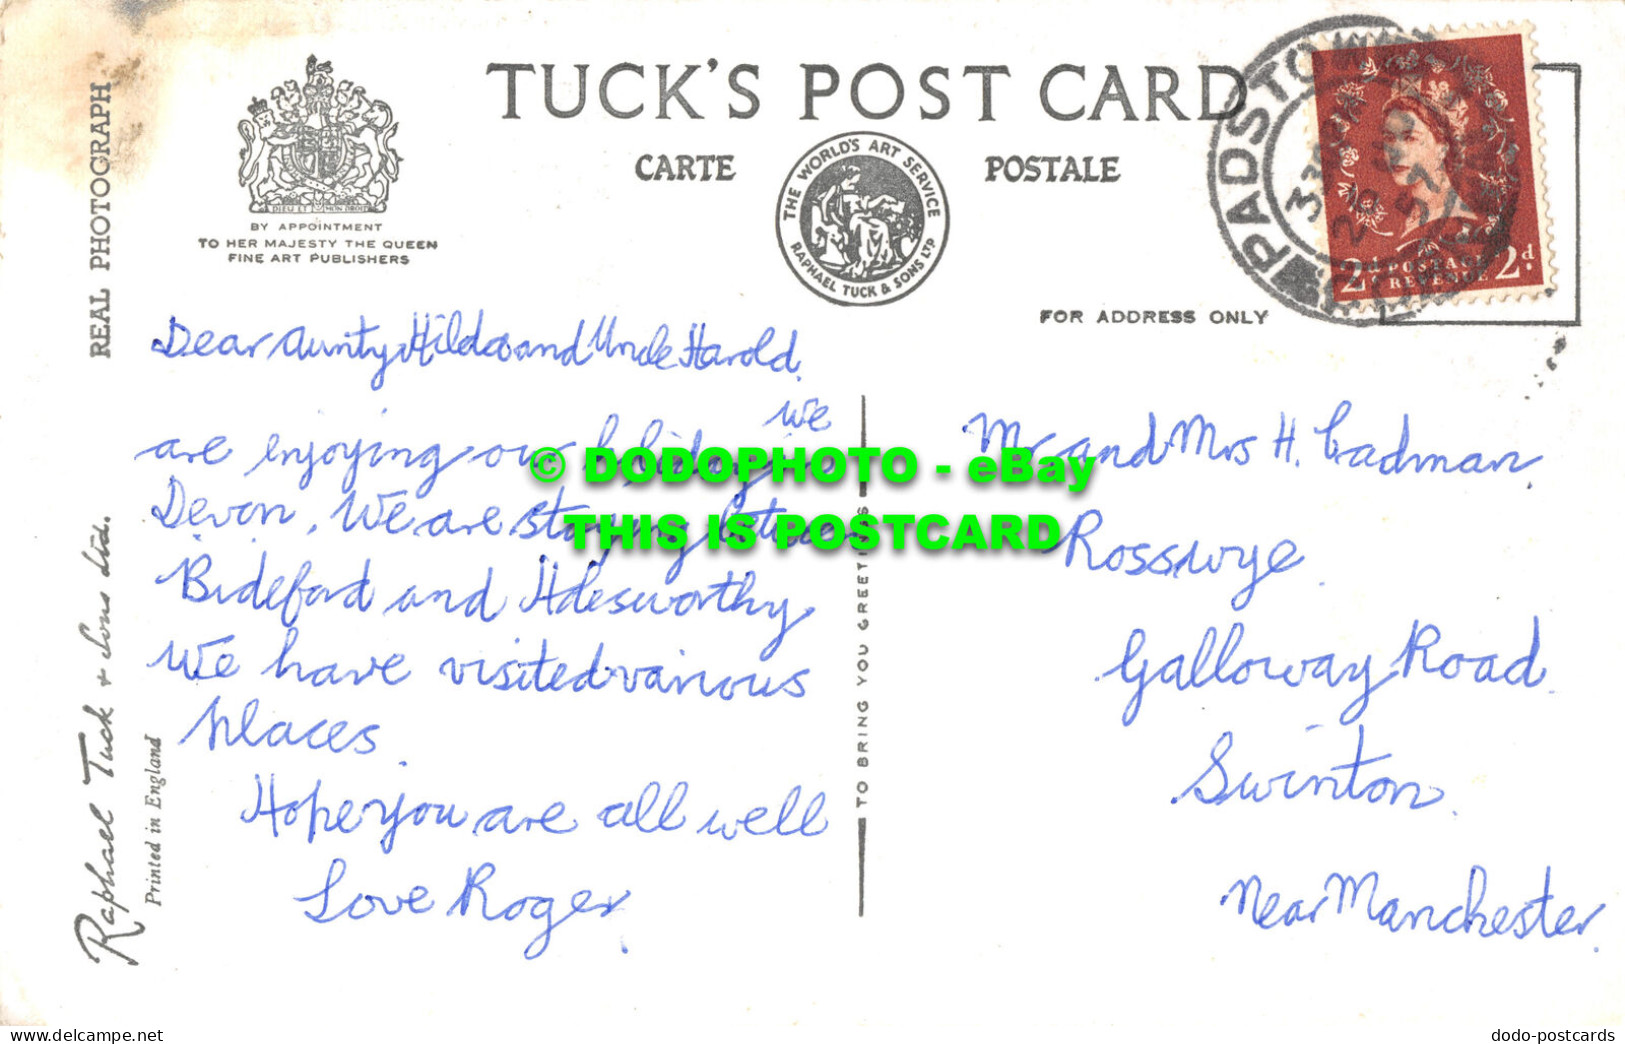 TUCK'S POST CARD
CARTE POSTALE
DIEU ET MON DROIT
BY APPOINTMENT
TO HER MAJESTY THE QUEEN
FINE ART PUBLISHERS
THE WORLD'S ART SERVICE
RAPHAEL TUCK & SONS LTD
PADSTOW
2d POSTAGE REVENUE 2d
FOR ADDRESS ONLY
REAL PHOTOGRAPH
Raphael Tuck & Sons Ltd.
Printed in England
Dear Aunty Hilda and Uncle Harold.
We
are enjoying our holiday in
Devon. We are staying between
Bideford and Holesworthy
We have visited various
places.
Hope you are all well
Love Roger.
TO BRING YOU GREETINGS
Mr and Mrs H. Cadman
Rosswye.
Galloway Road.
Swinton.
Near Manchester.
© DODOPHOTO - eBay
THIS IS POSTCARD
www.delcampe.net
dodo-postcards